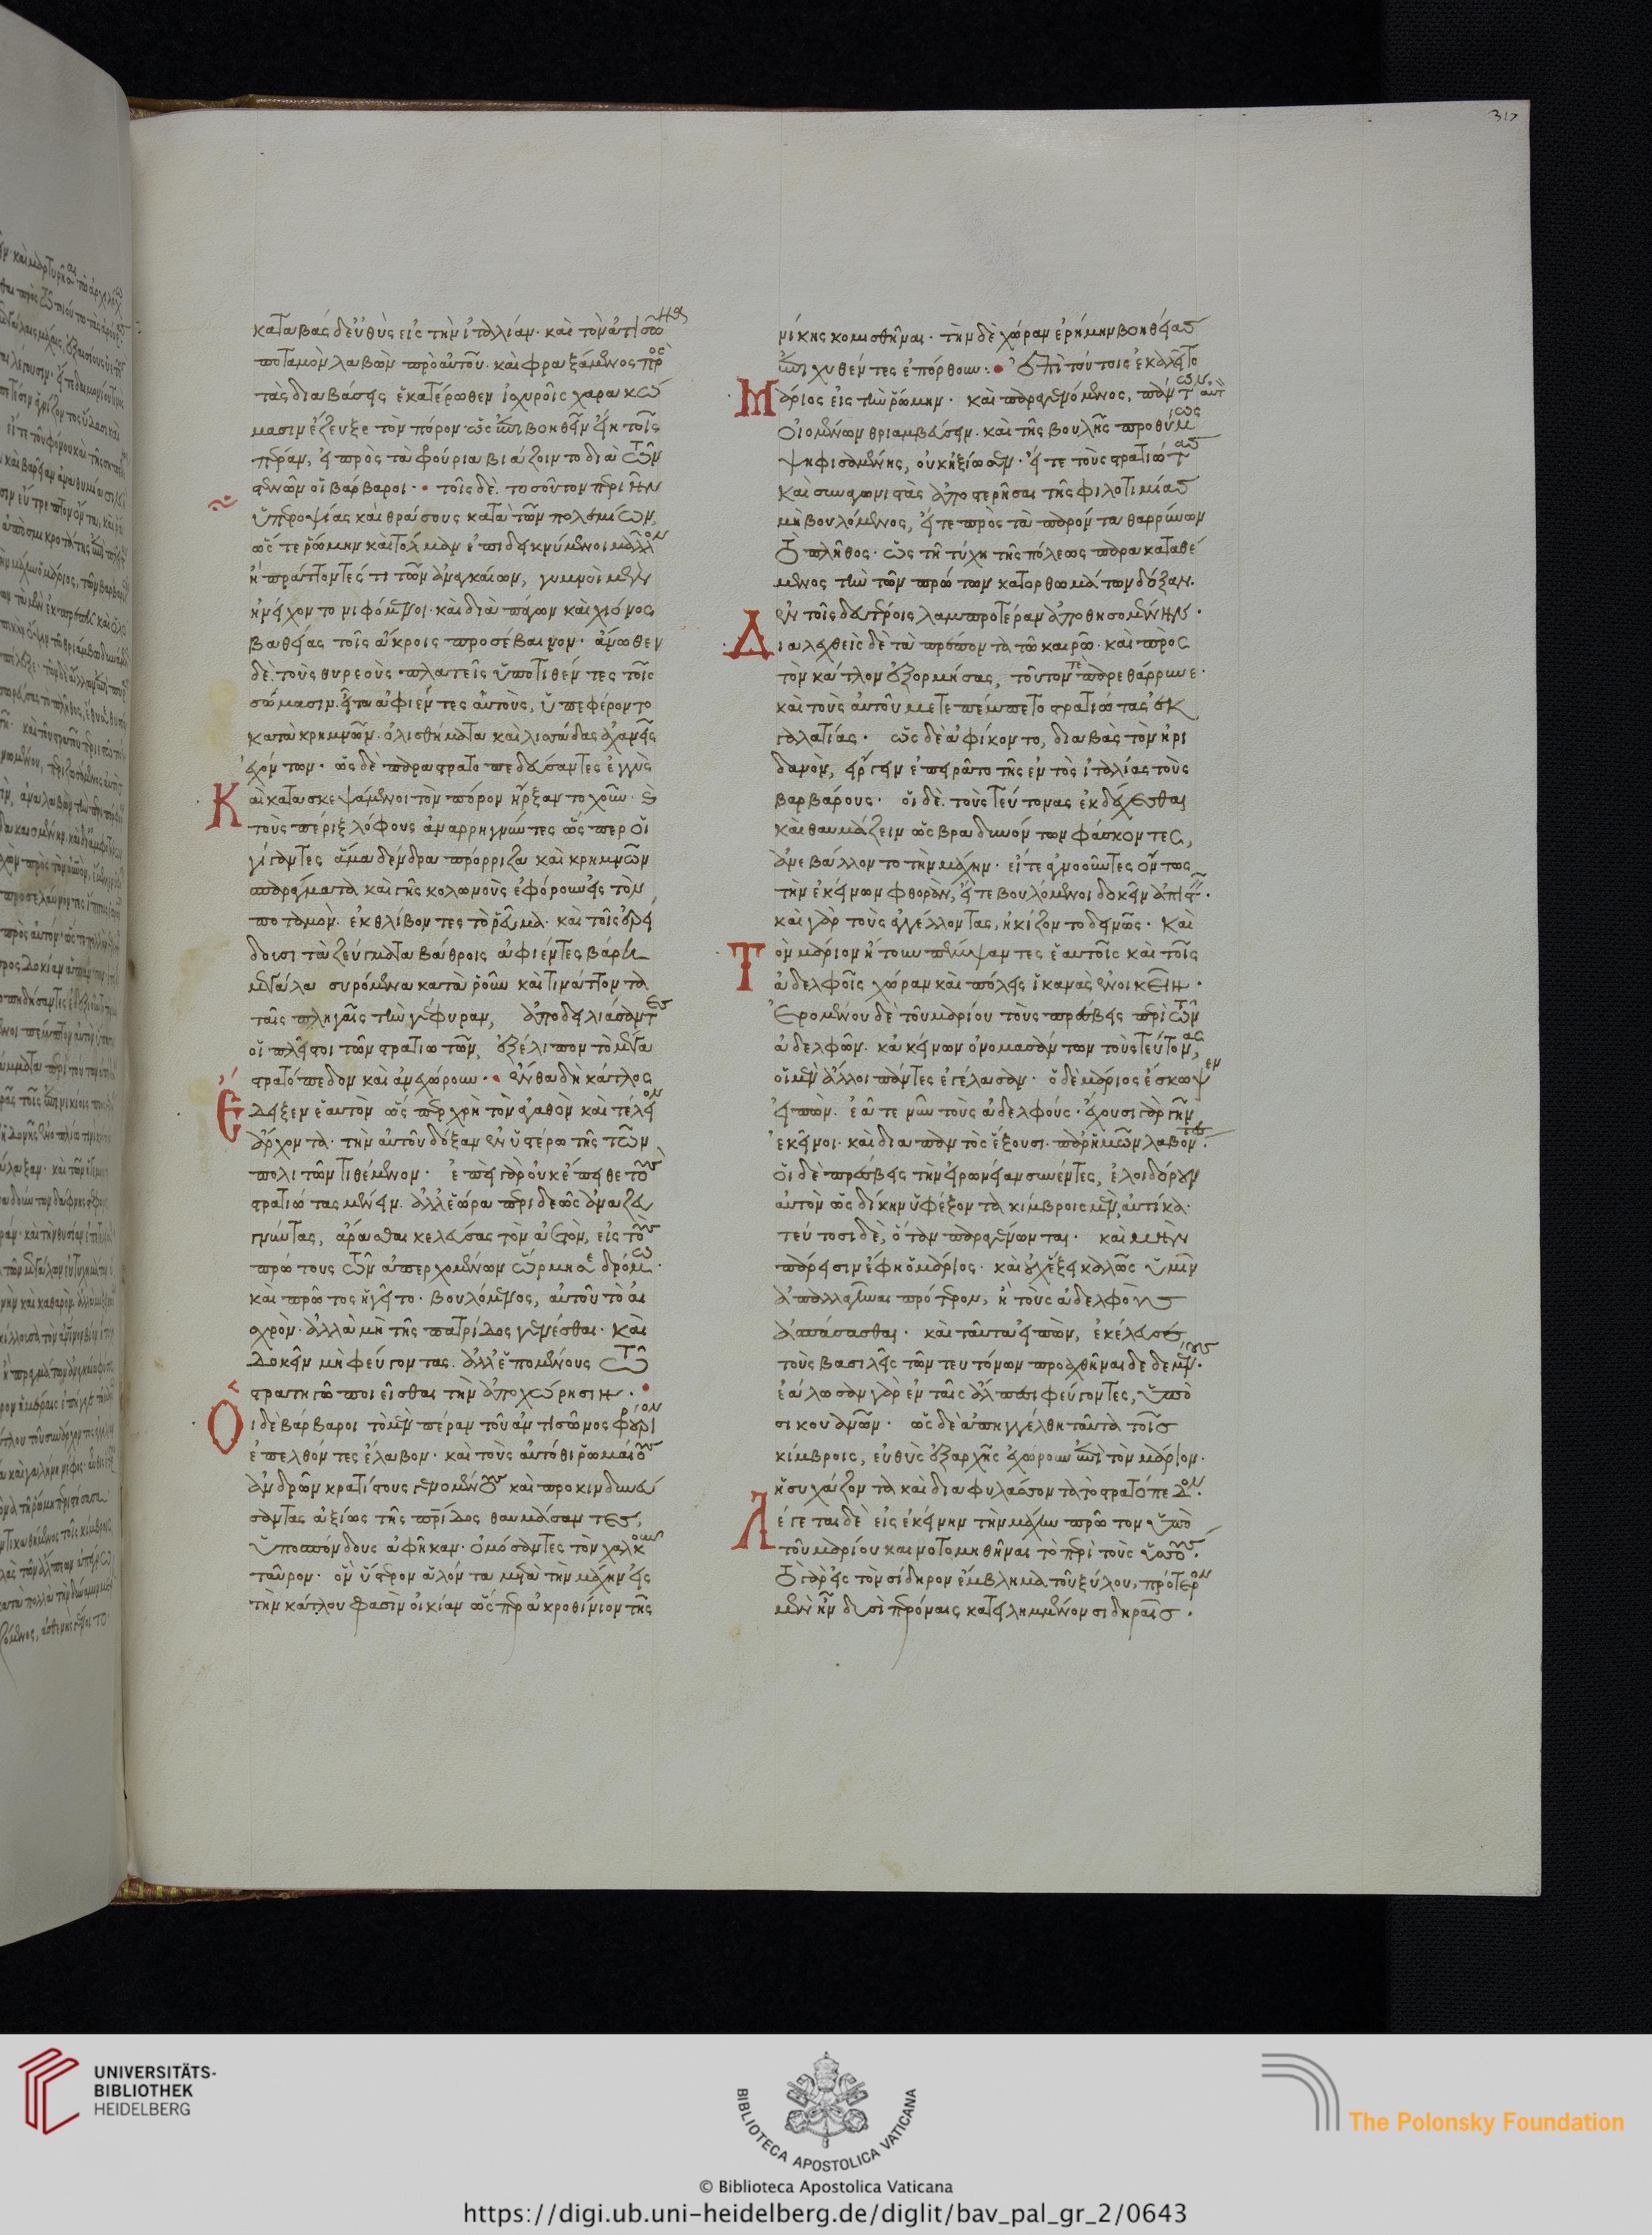 317
καταβὰς δ εὐθὺς εἰς τὴν ἰταλίαν. καὶ τὸν ἀτισῶνα
ποταμὸν λαβὼν πρὸ αὑτοῦ. καὶ φραξάμενος πρὸς
τὰς διαβάσεις ἑκατέρωθεν ἰσχυροῖς χαρακώ
μασιν ἔζευξε τὸν πόρον ὡς ἐπιβοηθεῖν εἴη τοῖς
πέραν, εἰ πρὸς τὰ φρούρια βιάζοιντο διὰ τῶν
στενῶν οἱ βάρβαροι. τοῖς δὲ. τοσοῦτον περιῆν
ὑπεροψίας καὶ θράσους κατὰ τῶν πολεμίων,
ὥστε ῥώμην καὶ τόλμαν ἐπιδεικνύμενοι μᾶλλον
ἢ πράττοντές τι τῶν ἀναγκαίων, γυμνοὶ μὲν
ἠνείχοντο νιφόμενοι. καὶ διὰ πάγων καὶ χιόνος
βαθείας τοῖς ἄκροις προσέβαινον. ἄνωθεν
δὲ. τοὺς θυρεοὺς πλατεῖς ὑποτιθέντες τοῖς
σώμασιν. εἶτα ἀφιέντες αὑτοὺς, ὑπεφέροντο
κατὰ κρημνῶν. ὀλισθήματα καὶ λισσάδας ἀχανεῖς
ἐχόντων. ὡς δὲ παραστρατοπεδεύσαντες ἐγγὺς
Καὶ κατασκεψάμενοι τὸν πόρον ἤρξαντο χοῦν. καὶ
τοὺς πέριξ λόφους ἀναρρηγνύντες ὥσπερ οἱ
γίγαντες ἅμα δένδρα πρόρριζα καὶ κρημνῶν
σπαράγματα καὶ γῆς κολωνοὺς ἐφόρουν εἰς τὸν
ποταμὸν. ἐκθλίβοντες τὸ ῥεῦμα. καὶ τοῖς ἐρεί
δουσι τὰ ζεύγματα βάθροις ἀφιέντες βάρη
μεγάλα συρόμενα κατὰ ῥοῦν καὶ τινάττοντα
ταῖς πληγαῖς τὴν γέφυραν, ἀποδειλιάσαντες
οἱ πλεῖστοι τῶν στρατιωτῶν, ἐξέλιπον τὸ μέγα
στρατόπεδον καὶ ἀνεχώρουν. ἔνθα δὴ κάτλος
Ἔδειξεν ἑαυτὸν ὥσπερ χρὴ τὸν ἀγαθὸν καὶ τέλειον
ἄρχοντα. τὴν αὑτοῦ δόξαν ἐν ὑστέρω τῆς τῶν
πολιτῶν τιθέμενον. ἐπεὶ γὰρ οὐκ ἔπειθε τοὺς
στρατιώτας μένειν. ἀλλ ἑώρα περιδεῶς ἀναζευ
γνύντας, ἄρασθαι κελεύσας τὸν ἀετὸν, εἰς τοὺς
πρώτους τῶν ἀπερχομένων ὥρμησε δρόμω.
καὶ πρῶτος ἡγεῖτο. βουλόμενος, αὑτοῦ τὸ αἰ
σχρὸν. ἀλλὰ μὴ τῆς πατρίδος γενέσθαι. καὶ
δοκεῖν μὴ φεύγοντας. ἀλλ ἑπομένους τῶ
στρατηγῶ ποιεῖσθαι τὴν ἀποχώρησιν.
Οἱ δὲ βάρβαροι τὸ μὲν πέραν τοῦ ἀτισῶνος φρούριον
ἐπελθόντες ἔλαβον. καὶ τοὺς αὐτόθι ῥωμαίους
ἀνδρῶν κρατίστους γενομένους καὶ προκινδυνεύ
σαντας ἀξίως τῆς πατρίδος θαυμάσαντες,
ὑποσπόνδους ἀφῆκαν. ὀμόσαντες τὸν χαλκοῦν
ταῦρον. ὃν ὕστερον ἁλόντα μετὰ τὴν μάχην εἰς
τὴν κάτλου φασὶν οἰκίαν ὥσπερ ἀκροθίνιον τῆς
νίκης κομισθῆναι. τὴν δὲ χώραν ἐρήμην βοηθείας
ἐπιχυθέντες ἐπόρθουν. Ἐπὶ τούτοις ἐκαλεῖτο
Μάριος εἰς τὴν ῥώμην. καὶ παραγενόμενος, πάντων αὐτὸν
οἰομένων θριαμβεύσειν. καὶ τῆς βουλῆς προθύμως
ψηφισαμένης, οὐκ ἠξίωσεν. εἴτε τοὺς στρατιώτας
καὶ συναγωνιστὰς ἀποστερῆσαι τῆς φιλοτιμίας
μὴ βουλόμενος, εἴτε πρὸς τὰ παρόντα θαρρύνων
τὸ πλῆθος. ὡς τῆ τύχη τῆς πόλεως παρακαταθέ
μενος τὴν τῶν πρώτων κατορθωμάτων δόξαν.
ἐν τοῖς δευτέροις λαμπροτέραν ἀποθησομένην.
Διαλεχθεὶς δὲ τὰ πρέποντα τῶ καιρῶ. καὶ πρὸς
τὸν κάτλον ἐξορμήσας, τοῦτόν τε παρεθάρρυνε.
καὶ τοὺς αὑτοῦ μετεπέμπετο στρατιώτας ἐκ
γαλατίας. ὡς δ ἀφίκοντο, διαβὰς τὸν ἠρι
δανὸν, εἴργειν ἐπειρᾶτο τῆς ἐντὸς ἰταλίας τοὺς
βαρβάρους. οἱ δὲ. τοὺς τεύτονας ἐκδέχεσθαι
καὶ θαυμάζειν ὡς βραδυνόντων φάσκοντες,
ἀνεβάλλοντο τὴν μάχην. εἴτε ἀγνοοῦντες ὄντως
τὴν ἐκείνων φθορὰν, εἴτε βουλόμενοι δοκεῖν ἀπιστεῖν.
καὶ γὰρ τοὺς ἀγγέλλοντας, ἠκίζοντο δεινῶς. καὶ
Τὸν μάριον ἤτουν πέμψαντες ἑαυτοῖς καὶ τοῖς
ἀδελφοῖς χώραν καὶ πόλεις ἱκανὰς ἐνοικεῖν.
Ἐρομένου δὲ τοῦ μαρίου τοὺς πρέσβεις περὶ τῶν
ἀδελφῶν. κἀκείνων ὀνομασάντων τοὺς τεύτονας,
οἱ μὲν ἄλλοι πάντες ἐγέλασαν. ὁ δὲ μάριος ἔσκωψεν
εἰπὼν. ἐᾶτε νῦν τοὺς ἀδελφούς. ἔχουσι γὰρ γῆν
ἐκεῖνοι. καὶ διαπαντὸς ἕξουσι. παρ ἡμῶν λαβόντες.
οἱ δὲ πρέσβεις τὴν εἰρωνείαν συνέντες, ἐλοιδόρουν
αὐτὸν ὡς δίκην ὑφέξοντα κίμβροις μὲν, αὐτίκα.
τεύτοσι δὲ, ὅταν παραγένωνται. καὶ μὴν
πάρεισιν ἔφη ὁ μάριος. καὶ οὐχ ἕξει καλῶς ὑμῖν
ἀπαλλαγῆναι πρότερον, ἢ τοὺς ἀδελφοὺς
ἀσπάσασθαι. καὶ ταῦτα εἰπὼν, ἐκέλευσε
τοὺς βασιλεῖς τῶν τευτόνων προαχθῆναι δεδεμένους.
ἑάλωσαν γὰρ ἐν ταῖς ἄλπεσι φεύγοντες, ὑπὸ
σικουανῶν. ὡς δὲ ἀπηγγέλθη ταῦτα τοῖς
κίμβροις, εὐθὺς ἐξαρχῆς ἐχώρουν ἐπὶ τὸν μάριον.
ἡσυχάζοντα καὶ διαφυλάσσοντα τὸ στρατόπεδον.
Λέγεται δὲ εἰς ἐκείνην τὴν μάχην πρῶτον ὑπὸ
τοῦ μαρίου καινοτομηθῆναι τὸ περὶ τοὺς ὑσσοὺς.
τὸ γὰρ εἰς τὸν σίδηρον ἔμβλημα τοῦ ξύλου, πρότερον
μὲν ἦν δυσὶ περόναις κατειλημμένον σιδηραῖς.
UNIVERSITÄTS-
BIBLIOTHEK
HEIDELBERG
BIBLIOTECA APOSTOLICA VATICANA
The Polonsky Foundation
© Biblioteca Apostolica Vaticana
https://digi.ub.uni-heidelberg.de/diglit/bav_pal_gr_2/0643